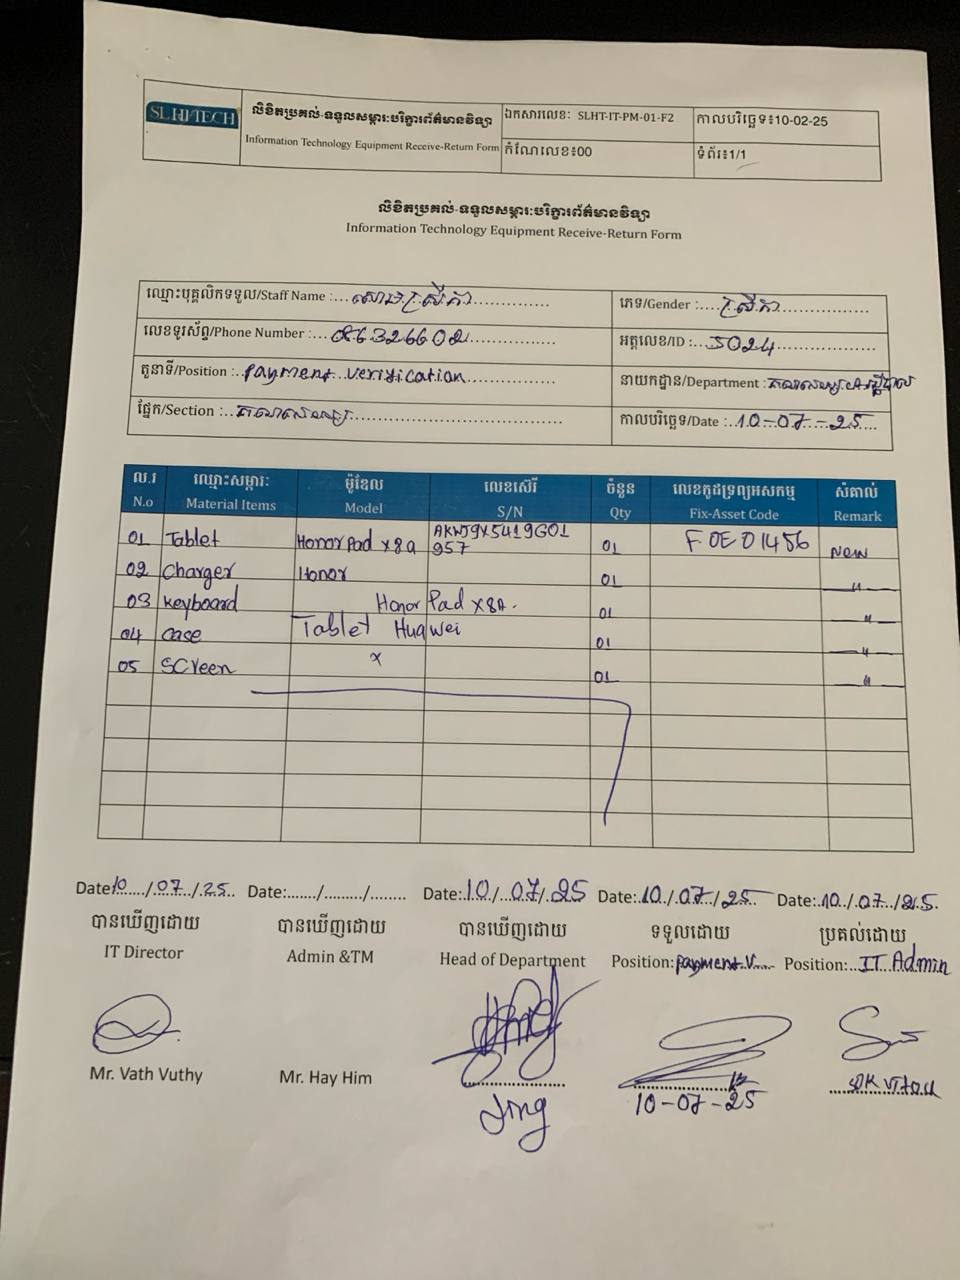 SL HI-TECH
លិខិតប្រគល់-ទទួលសម្ភារៈបរិក្ខារព័ត៌មានវិទ្យា
Information Technology Equipment Receive-Return Form
ឯកសារលេខ: SLHT-IT-PM-01-F2
កាលបរិច្ឆេទ៖10-02-25
កំណែលេខ៖00
ទំព័រ៖1/1
លិខិតប្រគល់-ទទួលសម្ភារៈបរិក្ខារព័ត៌មានវិទ្យា
Information Technology Equipment Receive-Return Form
ឈ្មោះបុគ្គលិកទទួល/Staff Name :... សោម ស្រីភា
ភេទ/Gender :.... ស្រី
លេខទូរស័ព្ទ/Phone Number :... 086326602
អត្តលេខ/ID :... 5024
តួនាទី/Position :.. Payment verification
នាយកដ្ឋាន/Department :
ផ្នែក/Section :..
កាលបរិច្ឆេទ/Date :.. 10-07-25
ល.រ ឈ្មោះសម្ភារៈ ម៉ូឌែល លេខស៊េរី ចំនួន លេខកូដទ្រព្យអសកម្ម សំគាល់
N.o Material Items Model S/N Qty Fix-Asset Code Remark
01 Tablet Honor Pad x8a AKWJ9X5419G01
957 01 F0E01456 New
02 Charger Honor 01 "
03 Keyboard Honor Pad X8A. 01 "
04 Case Tablet Huawei 01 "
05 SCreen x 01 "
Date 10/07/25 Date:....../........./........ Date:10/07/25 Date:10/07/25 Date:10/07/25
បានឃើញដោយ បានឃើញដោយ បានឃើញដោយ ទទួលដោយ ប្រគល់ដោយ
IT Director Admin &TM Head of Department Position:payment V Position: IT Admin
Mr. Vath Vuthy Mr. Hay Him
Jing 10-07-25